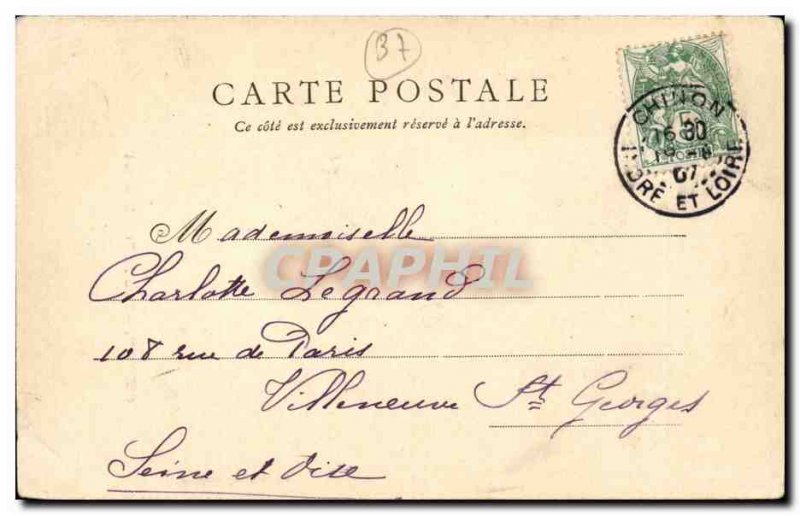 37
CARTE POSTALE
Ce côté est exclusivement réservé à l'adresse.
CHINON
16 30
07
INDRE ET LOIRE
CPRAPHIL
Mademoiselle
Charlotte Legrand
108 rue de Paris
Villeneuve St Georges
Seine et Oise